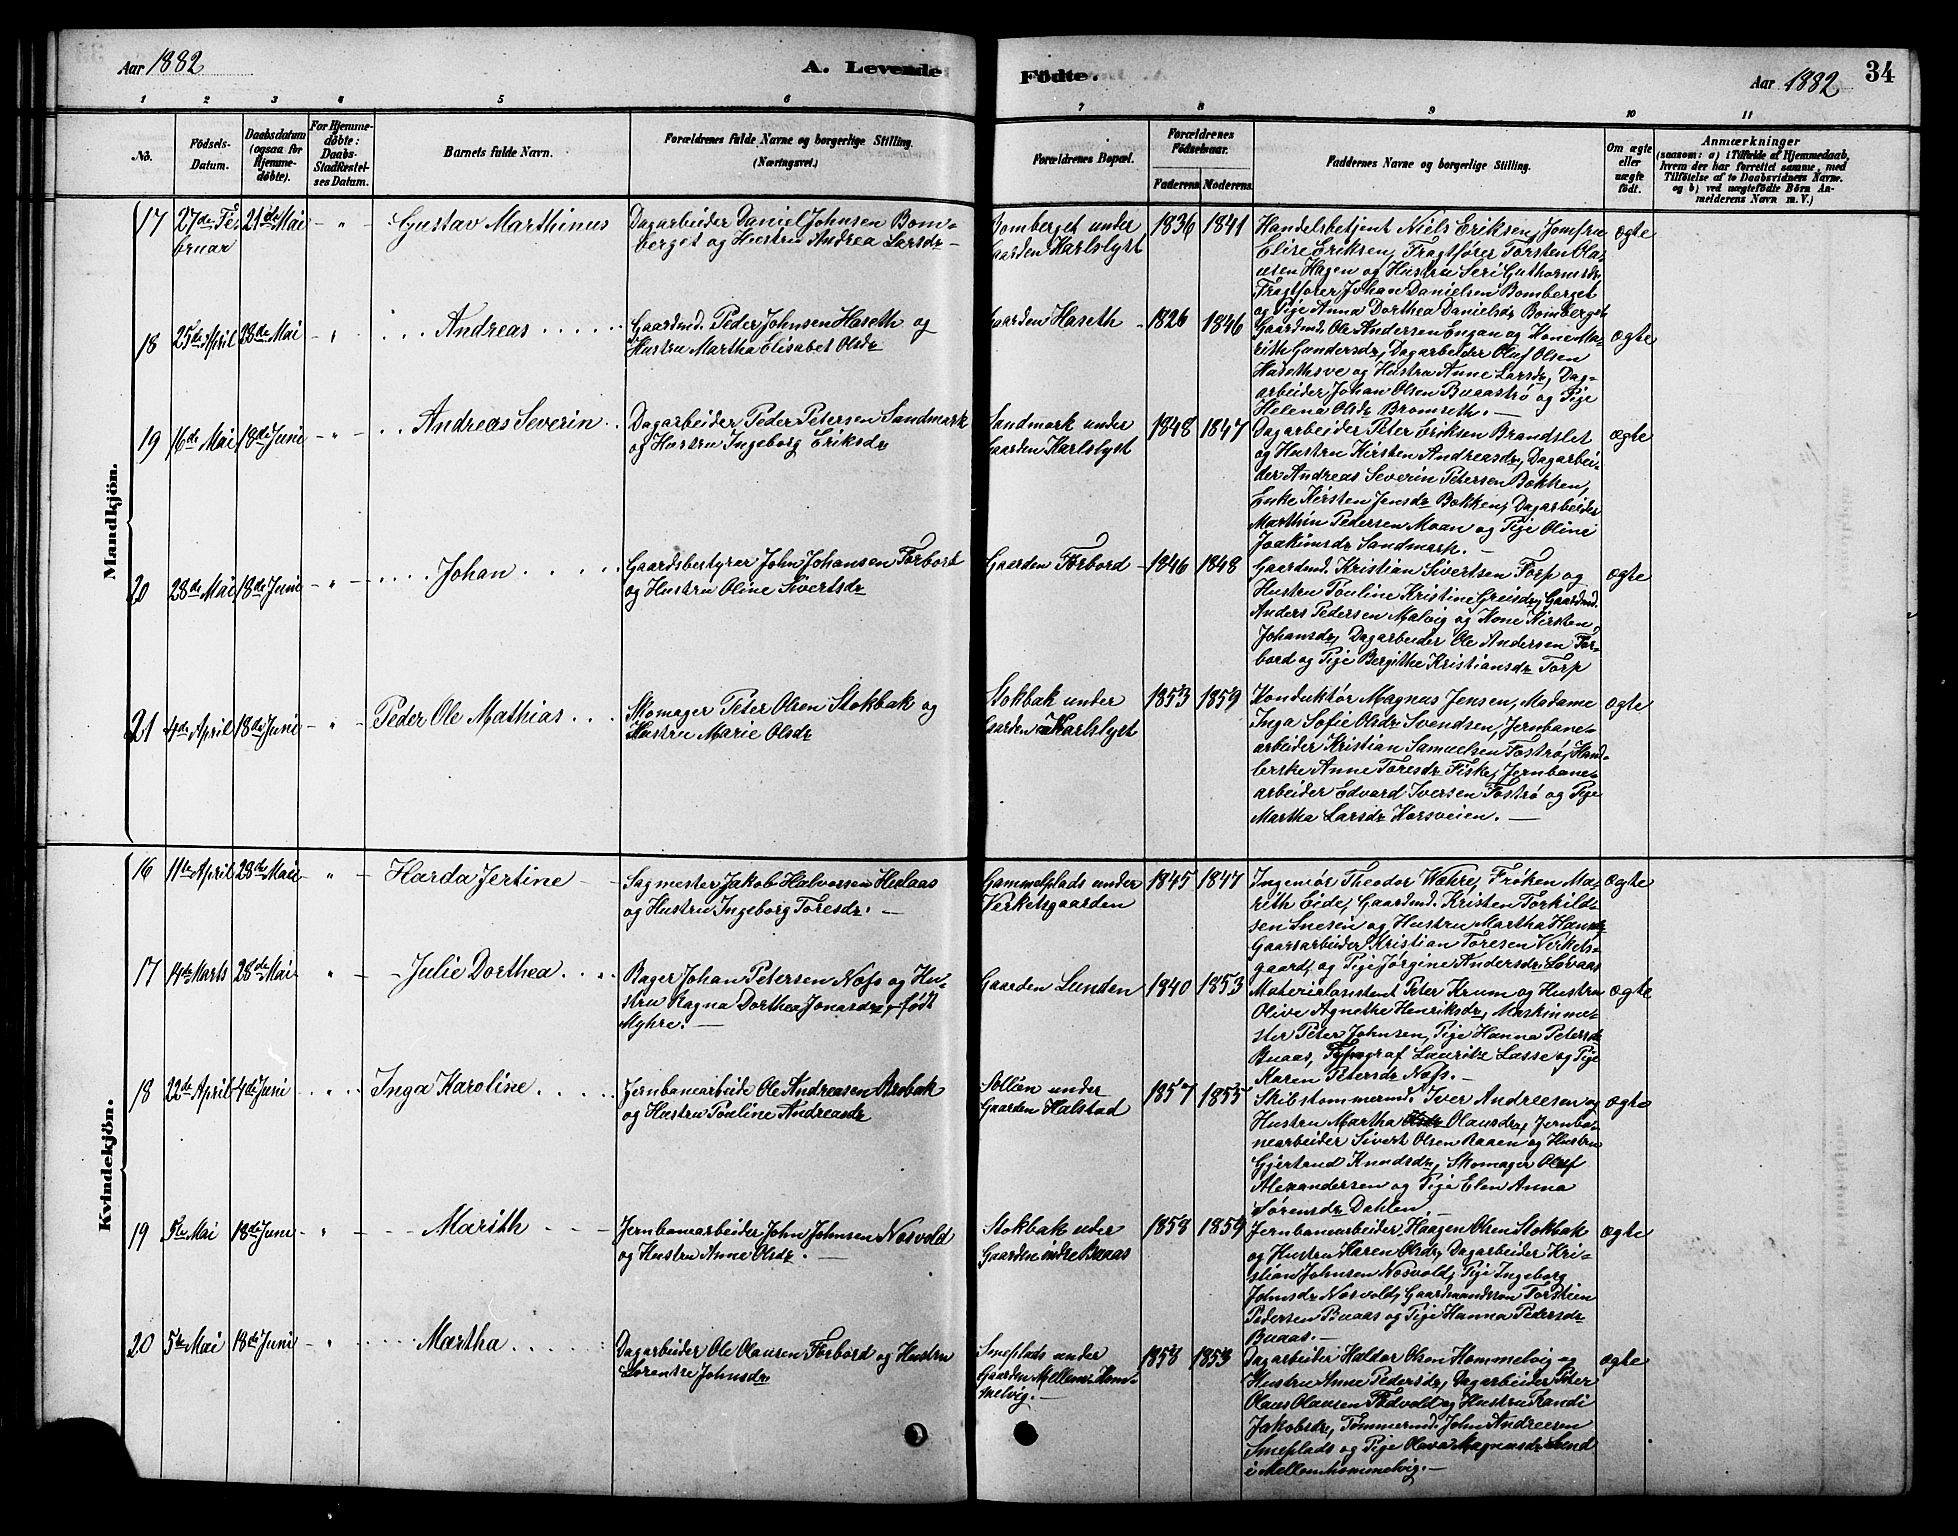 Aar 1882
A. Levende
Födte.
Aar 1882
34
1 2 3 4 5 6 7 8 9 10 11
No.
Födsels-
Datum.
Daabsdatum
(ogsaa for
Hjemme-
döbte).
For Hjemme-
döbte:
Daabs-
Stadfæstel-
ses Datum.
Barnets fulde Navn.
Forældrenes fulde Navne og borgerlige Stilling.
(Næringsvei.)
Forældrenes Bopæl.
Forældrenes
Födselsaar.
Faderens. Moderens.
Faddernes Navne og borgerlige Stilling.
Om ægte
eller
uægte
födt.
Anmærkninger
(saasom: a) i Tilfælde af Hjemmedaab,
hvem der har forrettet samme, med
Tilföielse af to Daabsvidners Navne.
og b) ved uægtefödte Börn An-
melderens Navn m. V.)
Mandkjön.
17 27de Fe- 21de Mai - " - Gustav Marthinus
bruar
Dagarbeider Daniel Johnsen Bom-
berget og Hustru Andrea Larsdr -
Bomberget under
Gaarden Karlslyst
1836 1841
Handelsbetjent Niels Eriksen, Jomfru
Elise Eriksen, Fragtfører Torsten Ola-
usen Hagen og Hustru Seri Guthormsdr,
Fragtfører Johan Danielsen Bomberget
og Pige Anna Dorthea Danielsdr Bomberget
ægte
18 25de April 28de Mai - " - Andreas
Gaardmd. Peder Johnsen Haseth og
Hustru Martha Elisabet Olsdr
Gaarden Haseth
1826 1846
Gaardmd. Ole Andersen Engan og Kone Ma-
rith Gundersdr, Dagarbeider Oluf Olsen
Hasethsve og Hustru Anne Larsdr, Dag-
arbeider Johan Olsen Buaastrø og Pige
Helena Olsdr Bromseth. -
ægte
19 16de Mai 18de Juni - " - Andreas Severin
Dagarbeider Peder Petersen Sandmark
og Hustru Ingeborg Eriksdr
Sandmark under
Gaarden Karlslyst
1848 1847
Dagarbeider Peter Eriksen Brandslet
og Hustru Kirsten Andreasdr, Dagarbei-
der Andreas Severin Petersen Bækken,
Enke Kirsten Jensdr Bækken, Dagarbeider
Marthin Pedersen Moan og Pige Oline
Joakimsdr Sandmark. -
ægte
20 28de Mai 18de Juni - " - Johan
Gaardsbestyrer John Johansen Forbord
og Hustru Oline Sivertsdr
Gaarden Forbord -
1846 1848
Gaardmd. Kristian Sivertsen Torp og
Hustru Pouline Kristine Greisdr, Gaardmd.
Anders Pedersen Malvig og Kone Kirsten
Johansdr, Dagarbeider Ole Andersen For-
bord og Pige Bergithe Kristiansdr Torp
ægte
21 4de April 18de Juni - " Peder Ole Mathias
Skomager Peter Olsen Stokbak og
Hustru Marie Olsdr
Stokbak under
Gaarden Karlslyst
1853 1859
Konduktør Magnus Jensen, Madame
Inga Sofie Olsdr Svendsen, Jernbane-
arbeider Kristian Samuelsen Fostrø, Hand-
lerske Anne Toresdr Fiske, Jernbane-
arbeider Edvard Iversen Fostrø og Pige
Martha Larsdr Korsveien. -
ægte
Kvindekjön.
16 11te April 28de Mai " - Harda Jertine -
Sagmester Jakob Halvorsen Heslaas
og Hustru Ingeborg Toresdr. -
Gammelplads under
Verketsgaarden
1845 1847
Ingeniør Theodor Wæhre, Frøken Ma-
rith Eide, Gaardmd. Kristen Torkild-
sen Snesen og Hustru Martha Hansdr
Gaarsarbeider Kristian Toresen Verkets-
gaard, og Pige Jørgine Andersdr Løvaas
ægte
17 14de Marts 28de Mai " - Julie Dorthea
Bager Johan Petersen Næss og Hu-
stru Ragna Dorthea Jonasdr, født
Myhre. -
Gaarden Lunden
1840 1853
Materialassistent Peter Krum og Hustru
Olive Agnethe Henriksdr, Maskinme-
ster Peter Johnsen, Pige Hanna Petersdr
Buaas, Typograf Lauritz Lasse og Pige
Karen Petersdr Næss. -
ægte
18 22de April 4de Juni " Inga Karoline
Jernbanearbeide Ole Andreasen Arebak
og Hustru Pouline Andreasdr
Sollien under
Gaarden Halstad
1857 1855
Skibstømmermd. Iver Andreesen og
Hustru Martha Olausdr, Jernba-
nearbeider Sivert Olsen Raaen og Hustru
Gjertrud Knudsdr, Skomager Oluf
Alexandersen og Pige Elen Anna
Sørensdr Dahlen -
ægte
19 5te Mai 18de Juni - " - Marith
Jernbanearbeider John Johnsen Nosvold
og Hustru Anne Olsdr. -
Stokbak under
Gaarden indre Buaas
1858 1859
Jernbanearbeider, Haagen Olsen Stokbak
og Hustru Karen Olsdr, Dagarbeider Kri-
stian Johnsen Nosvold, Pige Ingeborg
Johnsdr Nosvold, Gaardmandssøn Torstein
Pedersen Buaas og Pige Hanna Pedersdr
Buaas. -
ægte
20 5te Mai 18de Juni - " - Martha
Dagarbeider Ole Olausen Forbord og Hustru
Lorentse Johnsdr
Smeplads under
Gaarden Mellem Hom-
melvig. -
1853 1853
Dagarbeider Haldor Olsen Hommelvig og
Hustru Anne Pedersdr, Dagarbeider Peter
Olaus Olausen Fædvold og Hustru Randi
Jakobsdr, Tømmermd. John Andreesen
Smeplads og Pige Olava Magnusdr Sand
i Mellemhommelvig. -
ægte